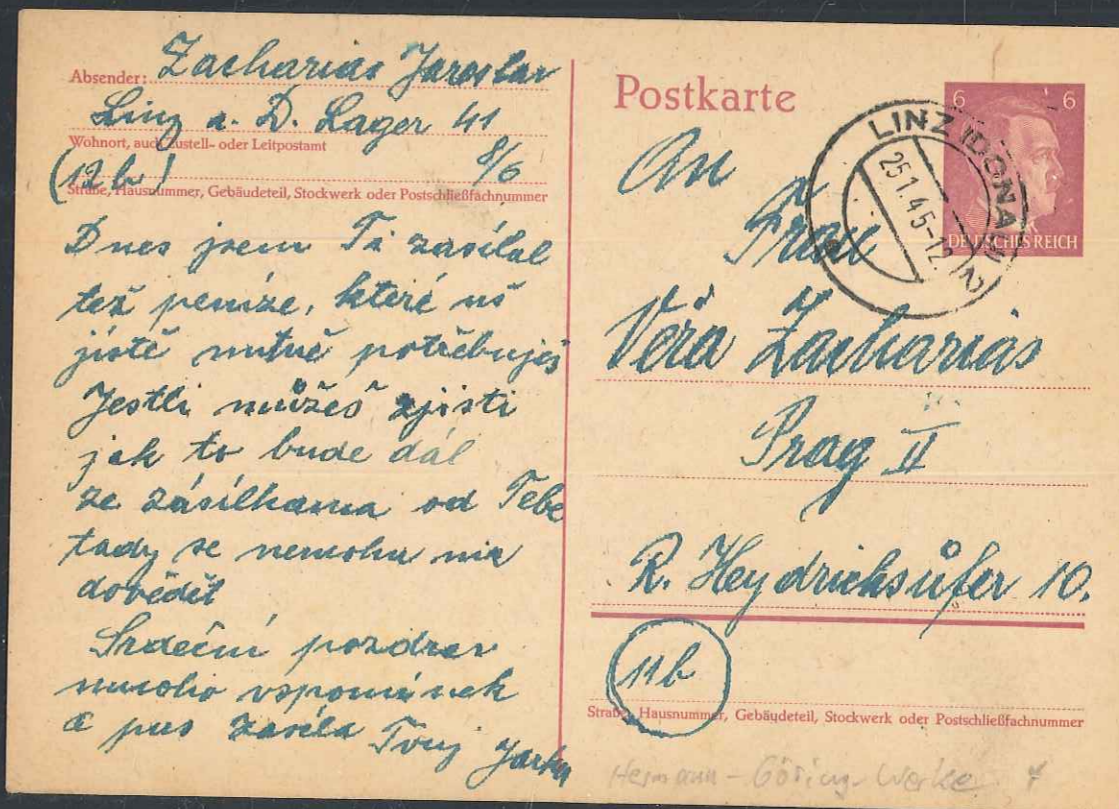 Absender: Zacharias Jaroslav
Linz a. D. Lager 41
Wohnort, auch Zustell- oder Leitpostamt
(12b) 8/6
Straße, Hausnummer, Gebäudeteil, Stockwerk oder Postschließfachnummer
Dnes jsem Ti zasílal
též peníze, které už
jistě nutně potřebuješ
Jestli můžeš zjisti
jak to bude dál
ze zásilkama od Tebe
tady se nemohu nic
dovědět
Srdeční pozdrav
mnoho vzpomínek
a pus zasílá Tvůj Jarka
Postkarte
6 6
DEUTSCHES REICH
LINZ (DONAU) 2
25.1.45-12
An
Frau
Věra Zacharias
Prag II
R. Heydrichsúfer 10.
11b
Straße, Hausnummer, Gebäudeteil, Stockwerk oder Postschließfachnummer
Hermann-Göring-Werke